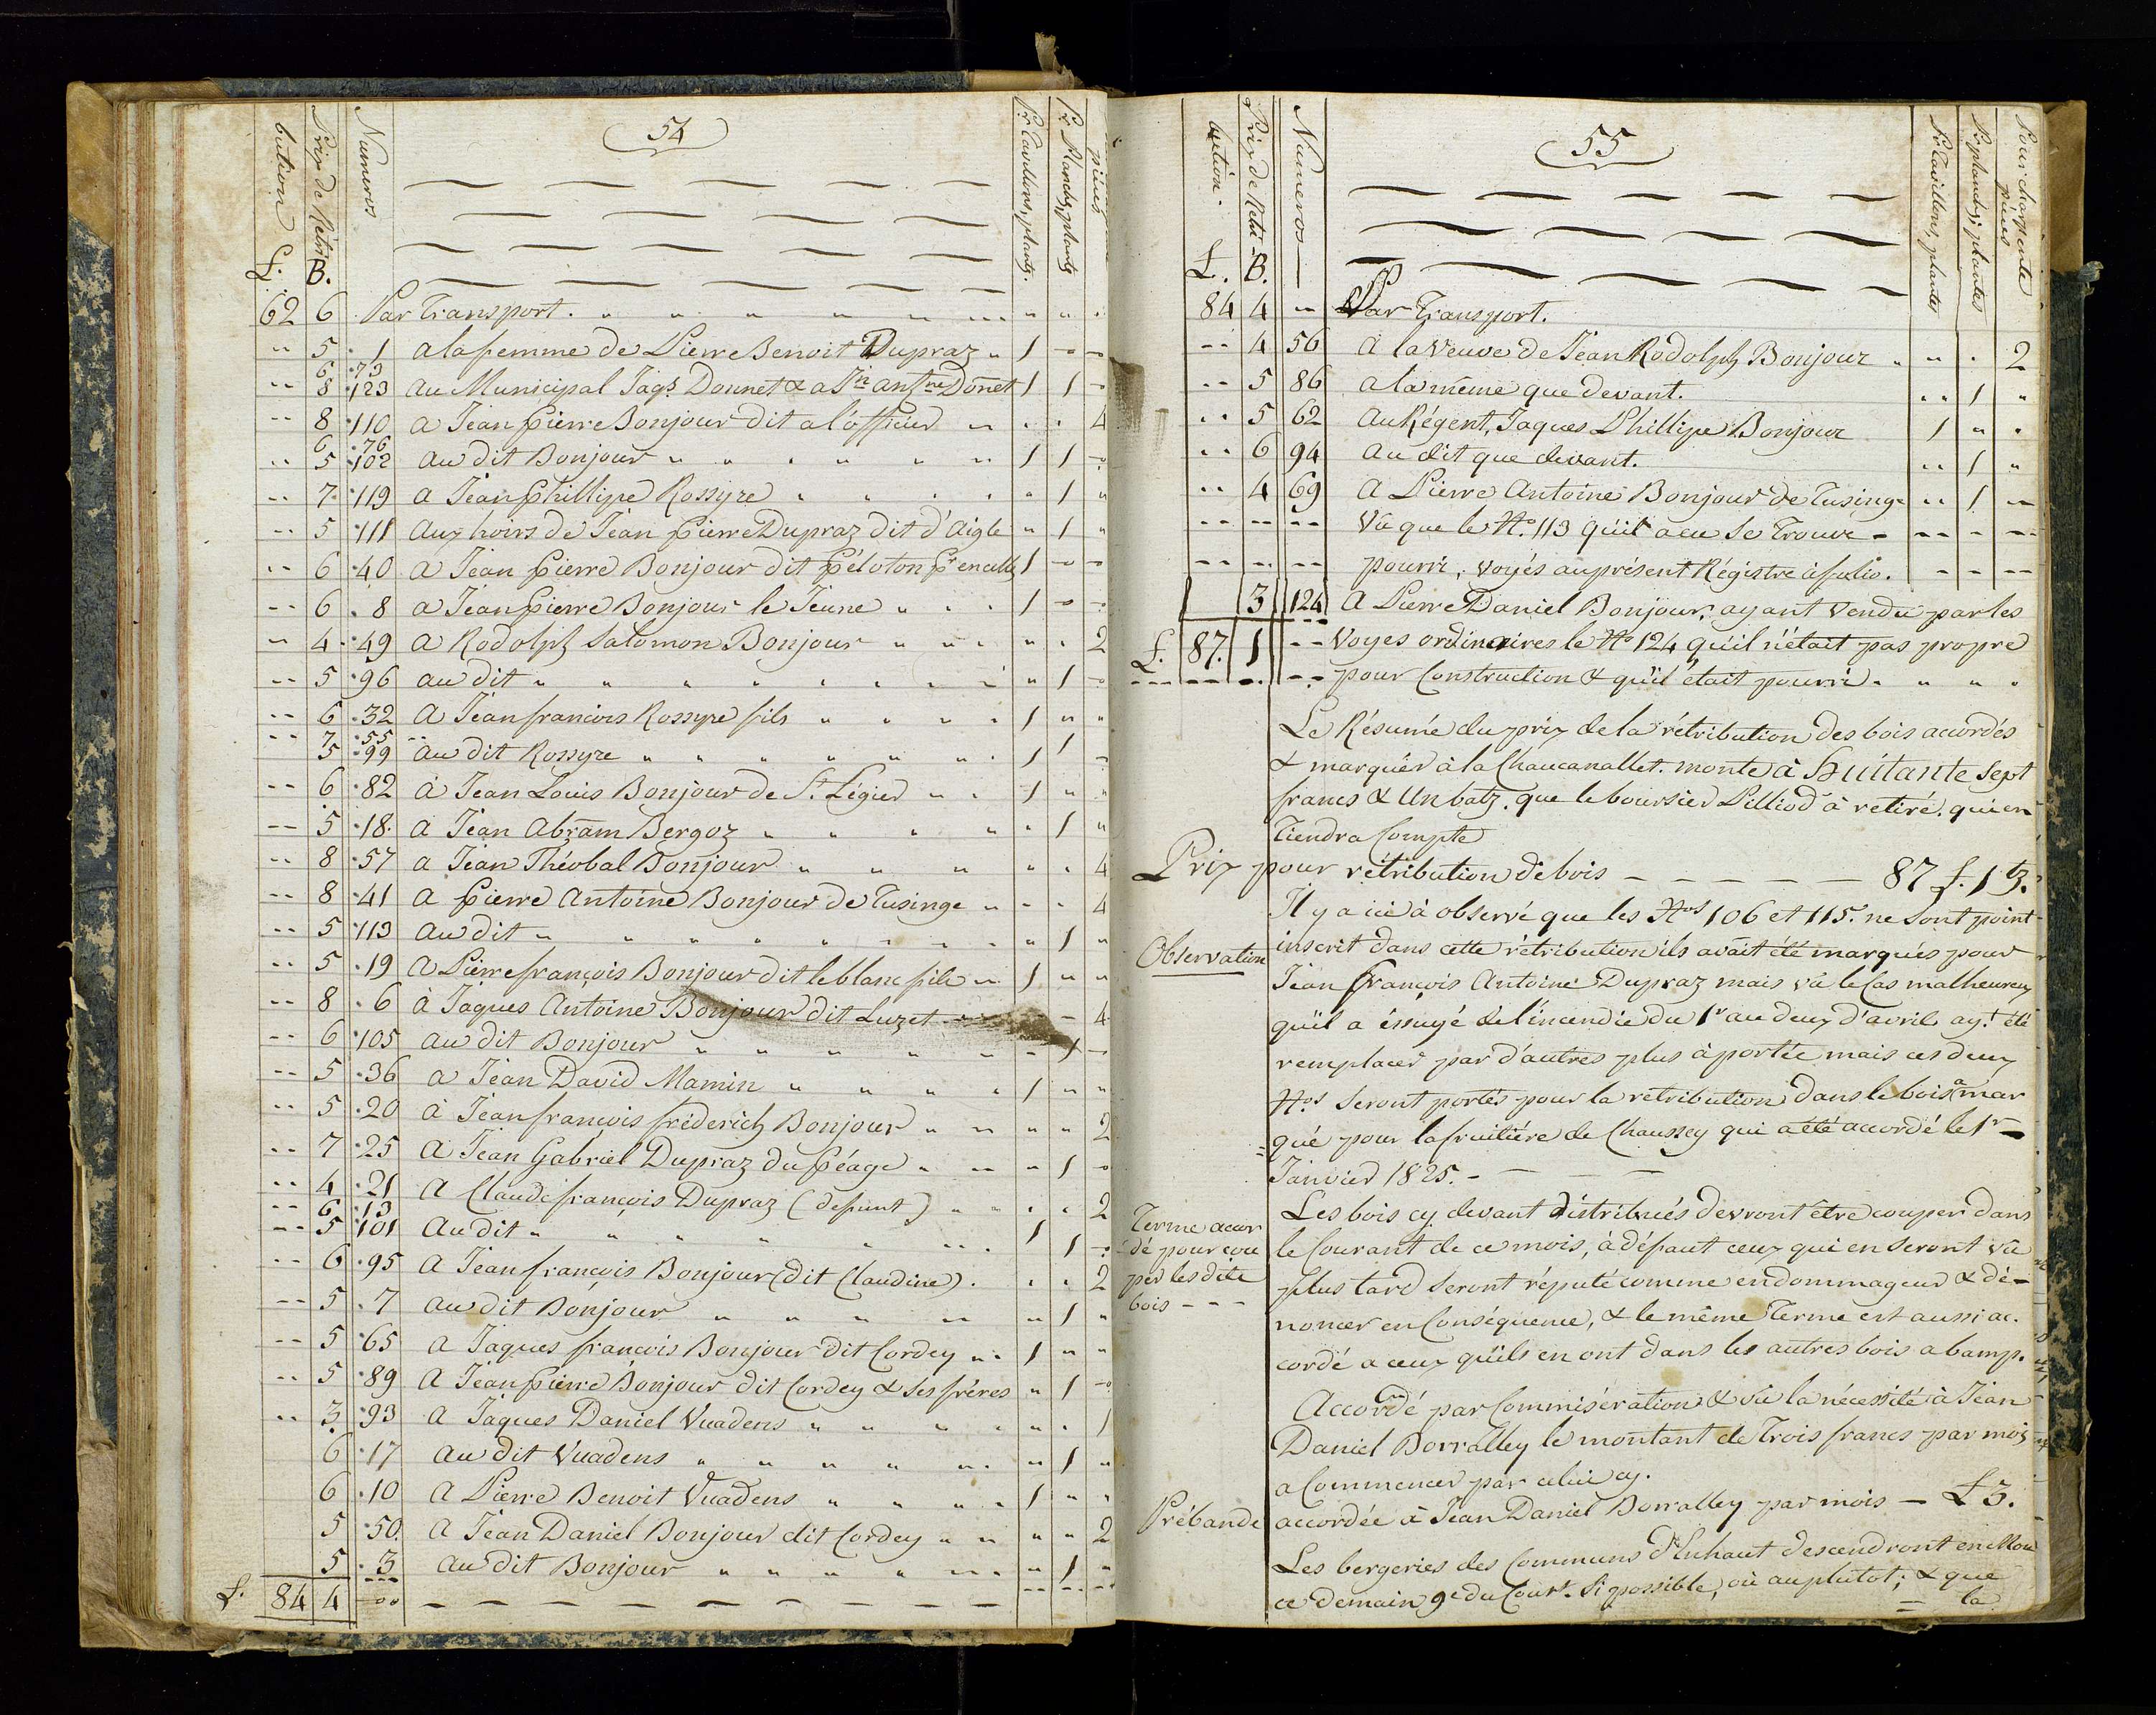 54
bution
Prix de Rétri
Numeros
Pr. Tavillons, plants.
Pr. Planchs, plants
pièces
L. B.
62 6 Par Transport. " " " " " " " " .
" 5 . 1 a la femme de Pierre Benoit Dupraz " 1 - -
6 . 73
" 8 . 123 au Municipal Jaqs. Donnet & a Jn antne Donnet 1 1 -
" 8 . 110 a Jean Pierre Bonjour dit a l'officier " . . 4
6 . 76
" 5 . 102 au dit Bonjour " " " " " " 1 1 -
" 7 . 119 a Jean Phillipe Rossyre " " " " 1 "
" 5 . 111 aux hoirs de Jean Pierre Dupraz dit d'Aigle " 1 "
" 6 . 40 a Jean Pierre Bonjour dit Péloton 1 - -
" 6 . 8 a Jean Pierre Bonjour le Jeune " " . 1 - -
" 4 . 49 a Rodolph Salomon Bonjour " " " " . 2
" 5 . 96 au dit " " " " " " " " 1 -
" 6 . 32 a Jean francois Rossyre fils " " " . 1 " "
7 . 55
" 5 . 99 au dit Rossyre " " " " " . 1 1 -
" 6 . 82 à Jean Louis Bonjour de St. Légier " " 1 " "
" 5 . 18. a Jean Abram Bergoz " " " " . 1 "
" 8 . 57 a Jean Théobal Bonjour " " " " . 4
" 8 . 41 a Pierre Antoine Bonjour de Tusinge " - . 4
" 5 . 113 au dit " " " " " " " " 1 "
" 5 . 19 a Pierre françois Bonjour dit le blanc file " 1 " "
" 8 . 6 à Jaques Antoine Bonjour dit Luzet - - - 4
" 6 . 105 au dit Bonjour " " " " " - 1 -
" 5 . 36 a Jean David Mamin " " " " 1 " "
" 5 . 20 à Jean françois fréderich Bonjour " " " " 2
" 7 . 25 a Jean Gabriel Dupraz du Péage " " " 1 -
" 4 . 21 a Claude françois Dupraz (defunt) " " . . 2
" 6 . 13
" 5 . 101 au dit " " " " " " . 1 1 -
" 6 . 95 a Jean françois Bonjour (dit Claudine). . . 2
" 5 . 7 au dit Bonjour " " " " " 1 "
" 5 . 65 a Jaques francois Bonjour dit Cordey " . 1 " "
" 5 . 89 a Jean Pierre Bonjour dit Cordey & ses frères " 1 -
" 3 . 93 a Jaques Daniel Vuadens " " " " " . 1
6 . 17 au dit Vuadens " " " " " . " 1 "
6 . 10 a Pierre Benoit Vuadens " " " . 1 " "
5 . 50. a Jean Daniel Bonjour dit Cordey " " " " 2
5 . 3 au dit Bonjour " " " " " . " 1 "
L. 84 4
55
bution.
Prix de Rétri
Numeros
Pr. Tavillons, plantes
Pr. planchs; plantes
Pour charpente pièces
L. B.
84 4 " Par Transport.
" 4 56 à la Veuve de Jean Rodolph Bonjour " " . 2
" 5 86 a la même que devant. " 1 "
" 5 62 au Régent, Jaques Phillipe Bonjour 1 " "
" 6 94 au dit que devant. " 1 "
" 4 69 a Pierre Antoine Bonjour de Tusinge " 1 "
Vû que le No. 113 qu'il a eu se trouve -
pourri, voyés au présent Régistre à folio.
3 124 a Pierre Daniel Bonjour; ayant vendu par les
L. 87. 1 Voyes ordinaires le No 124 qu'il n'était pas propre
pour Construction & qu'il était pourri. " " "
Le Résumé du prix de la rétribution des bois accordés
& marqués à la Chaucanallet. monte à Huitante sept
francs & Un batz. que le boursier Pilliod à retiré. qui en
Tiendra Compte
Prix pour rétribution de bois - - - - - - 87 L. 1 B.
Il y a ici à observé que les Nos 106 et 115. ne sont point
Observation
inscrit dans cette rétribution ils avait été marqués pour
Jean François Antoine Dupraz mais vû le Cas malheureux
qu'il a éssuyé de l'incendie du 1r au deux d'avril ayt. été
remplacer par d'autres plus à portée mais ces deux
Nos. seront portés pour la retribution dans le bois a mar
qué pour la fruitière de Chaussey qui a été accordé le 1r -
Janvier 1825. -
Les bois cy devant distribués devront être couper dans
Terme accor
dé pour cou
per les dits
bois - - -
le Courant de ce mois, à défaut ceux qui en seront vû
plus tard seront réputé comme endommageur & dé-
noncer en Conséquence, & le même Terme est aussi ac.
cordé a ceux qu'ils en ont dans les autres bois a bamp.
Accordé par Commisération & vû la nécessité à Jean
Daniel Borralley le montant de Trois francs par mois
a Commencer par celui cy.
Prébande
accordée à Jean Daniel Borralley par mois - L 3.
Les bergeries des Communs d'Enhaut descendront en
ce demain 9e du Court. si possible, où au plutot; & que
= la